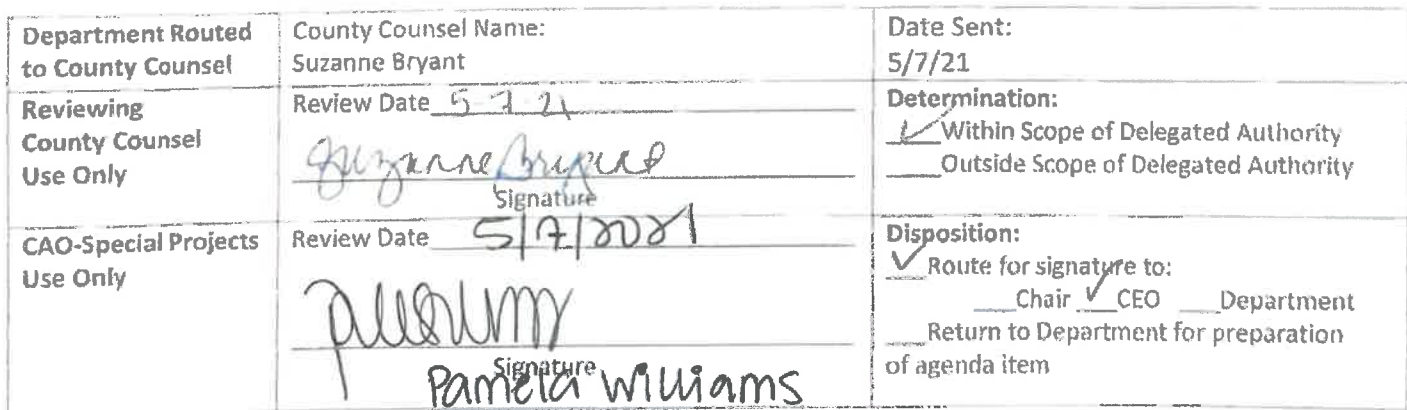 Department Routed
to County Counsel
County Counsel Name:
Suzanne Bryant
Date Sent:
5/7/21
Reviewing
County Counsel
Use Only
Review Date 5-7-21
Suzanne Bryant
Signature
Determination:
✓ Within Scope of Delegated Authority
___Outside Scope of Delegated Authority
CAO-Special Projects
Use Only
Review Date 5/7/2021
Signature
Pamela Williams
Disposition:
✓ Route for signature to:
___Chair ✓ CEO ___Department
___Return to Department for preparation
of agenda item